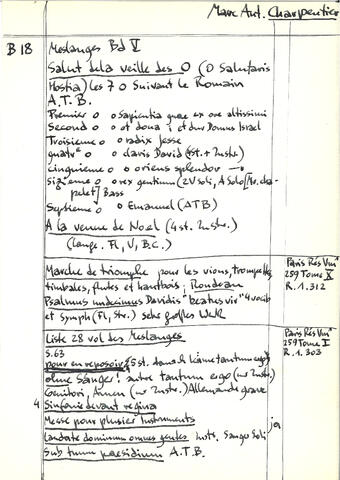 Marc Ant. Charpentier
B 18 Meslanges Bd V
Salut dela veille des O (O Salutaris
Hostia) les 7 O Suivant le Romain
A.T.B.
Premier o o Sapientia quae ex ore altissimi
Second o o et Domus Israel
Troisieme o o radix Jesse
o clavis David (4st. + Instr.)
cinquieme o o oriens splendor
o rex gentium (2 Violi, A Solo)
Bass
Septieme o o Emanuel (ATB)
A la venue de Noel (4 st. Instr.)
(Lange. Fl, V, B.C.)
Marche de triomphe pour les violons, trompettes,
timbales, flutes et hautbois; Rondeau
Psalmus undecimus Davidis "beatus vir" 4 vocib
et Symph (Fl, Str.) sehr großes Werk
Paris Rés Vm¹
259 Tome X
R. 1.312
Liste 28 vol des Meslanges
S. 63
pour en reposoir
ohne Sänger! autre tantum ergo (w Instr.)
Genitori, Amen (w Instr.) Allemande grave
4 Sinfonie devant regina
Messe pour plusier Instruments
Laudate dominum omnes gentes Instr. Sanger Soli
Sub tuum praesidium A.T.B.
ja
Paris Rés Vm¹
259 Tome I
R. 1.303